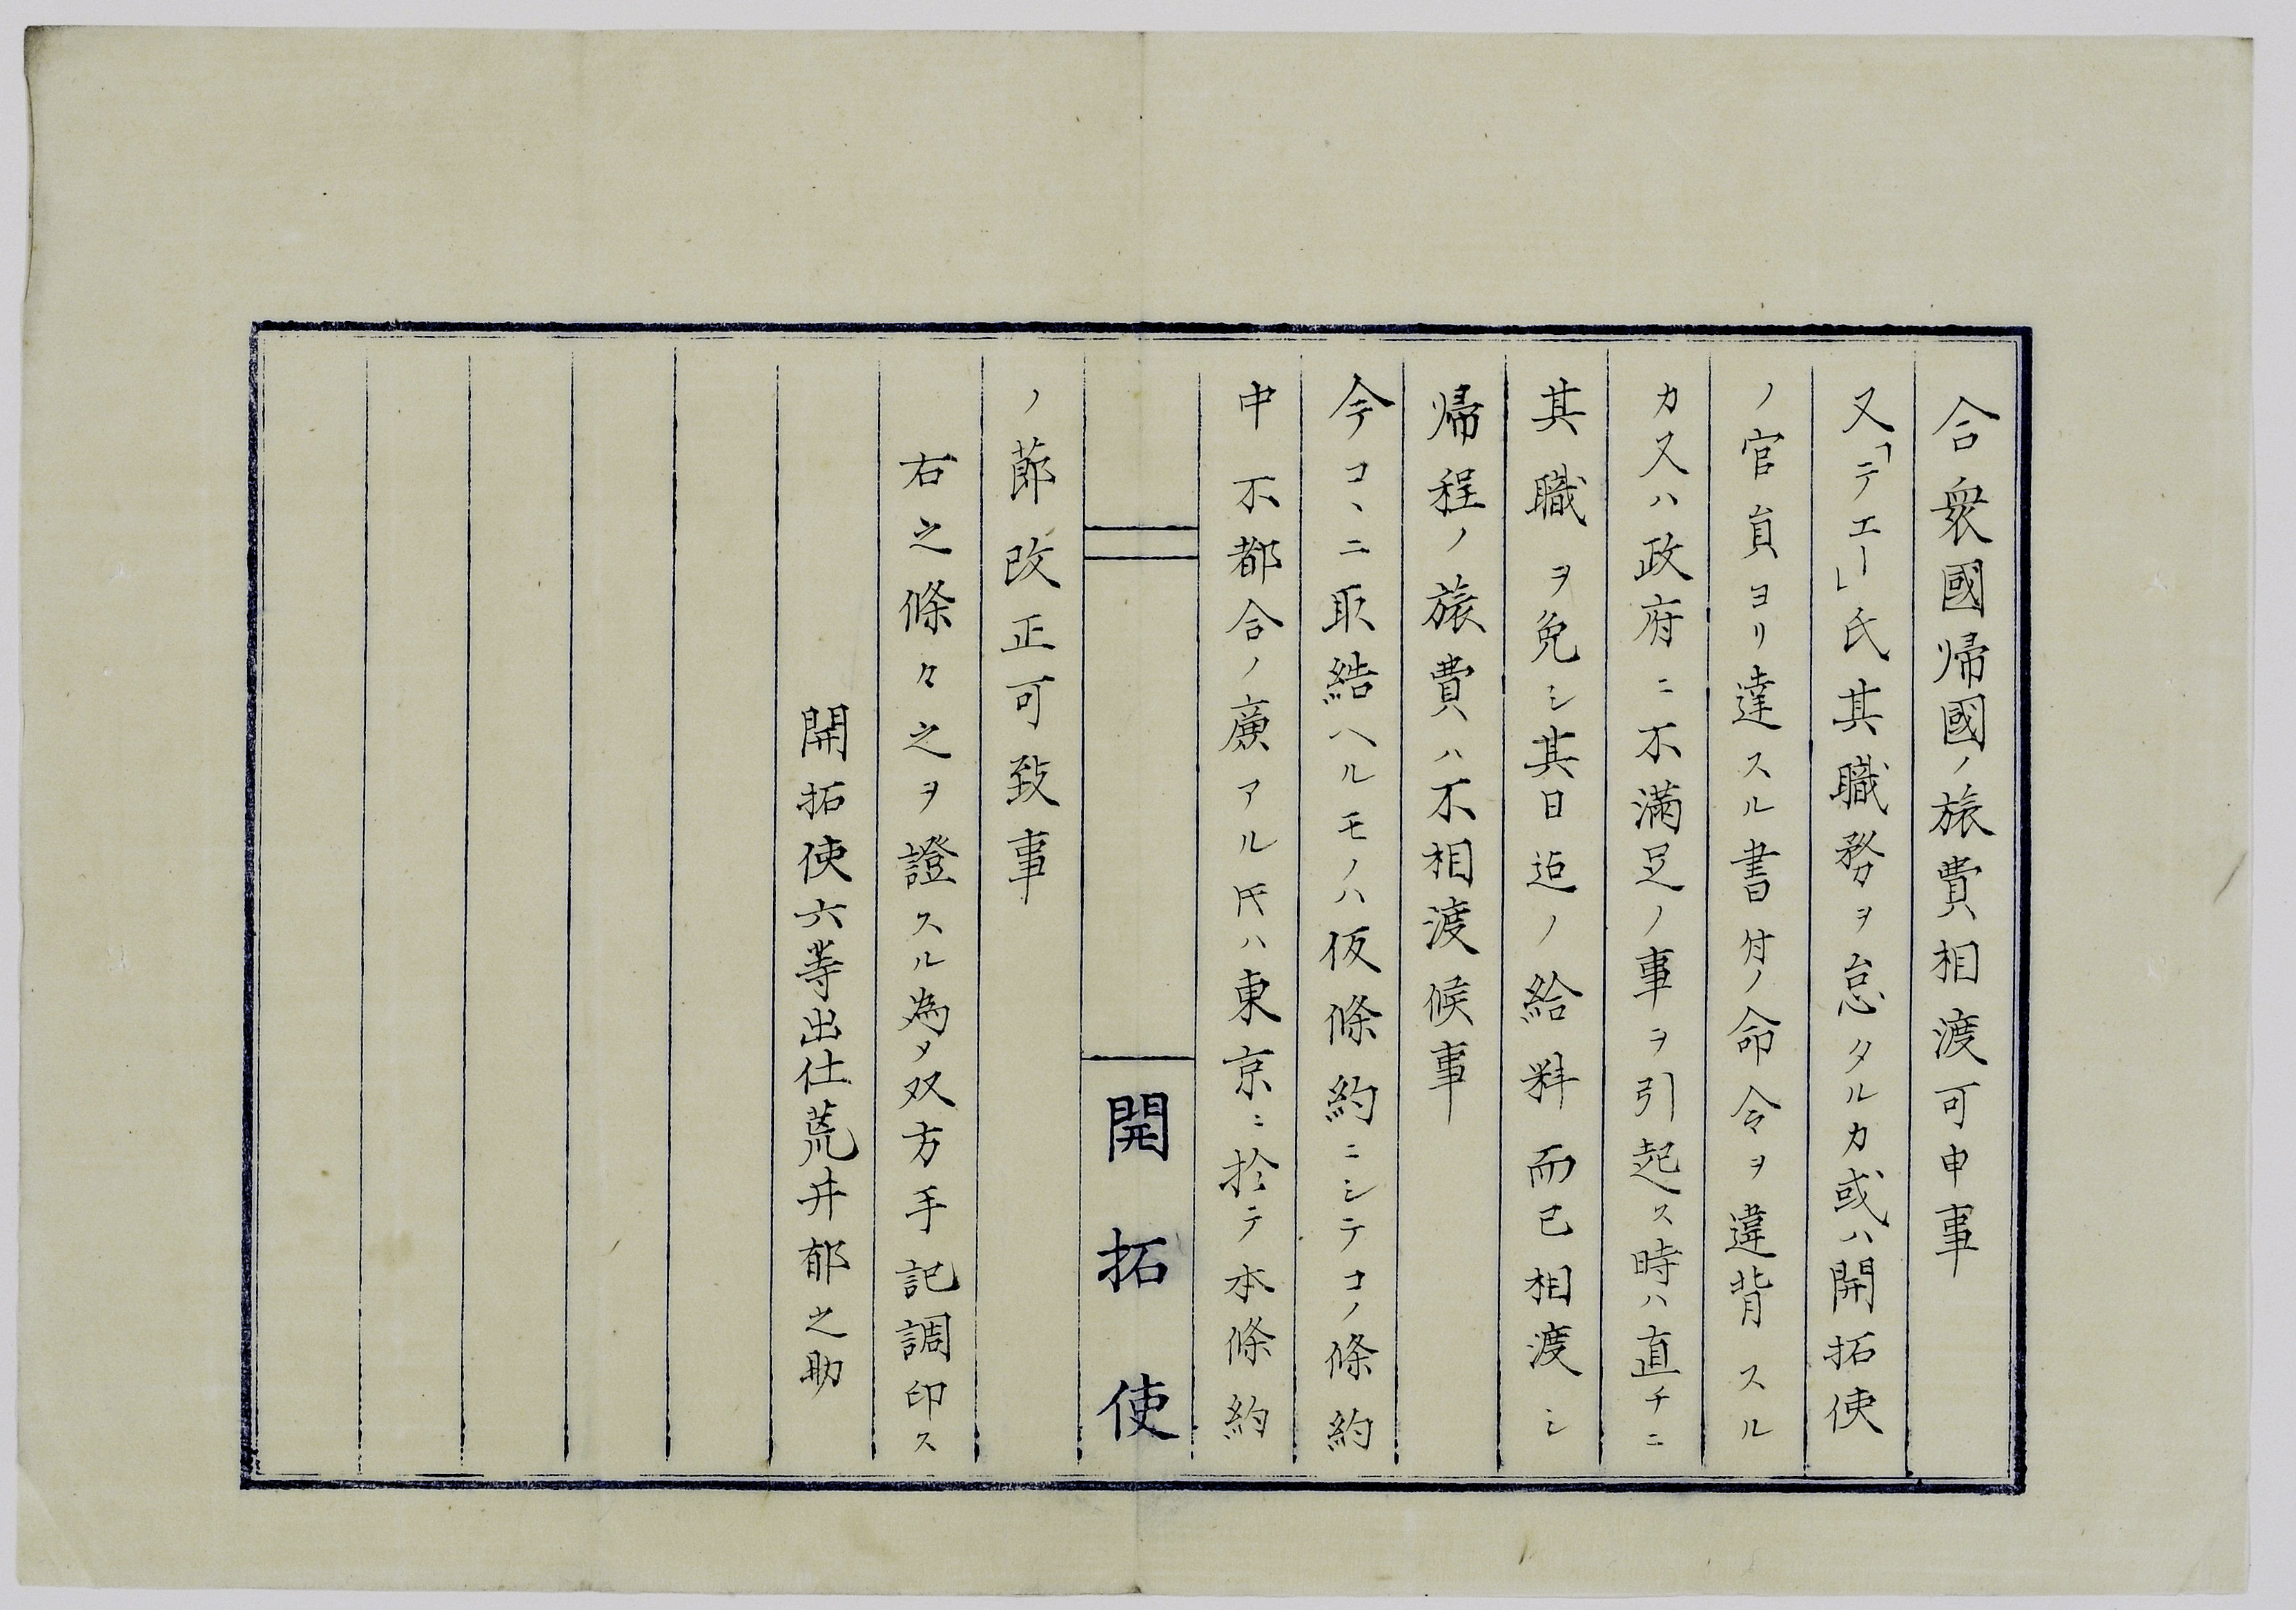 合衆國帰國ノ旅費相渡可申事
又「テエー」氏其職務ヲ怠タルカ或ハ開拓使
ノ官員ヨリ達スル書付ノ命令ヲ違背スル
カ又ハ政府ニ不満足ノ事ヲ引起ス時ハ直チニ
其職ヲ免シ其日迄ノ給料而已相渡シ
帰程ノ旅費ハ不相渡候事
今コヽニ取結ヘルモノハ仮條約ニシテコノ條約
中不都合ノ廉アル氏ハ東京ニ於テ本條約
開拓使
ノ節改正可致事
右之條々之ヲ證スル為メ双方手記調印ス
開拓使六等出仕荒井郁之助